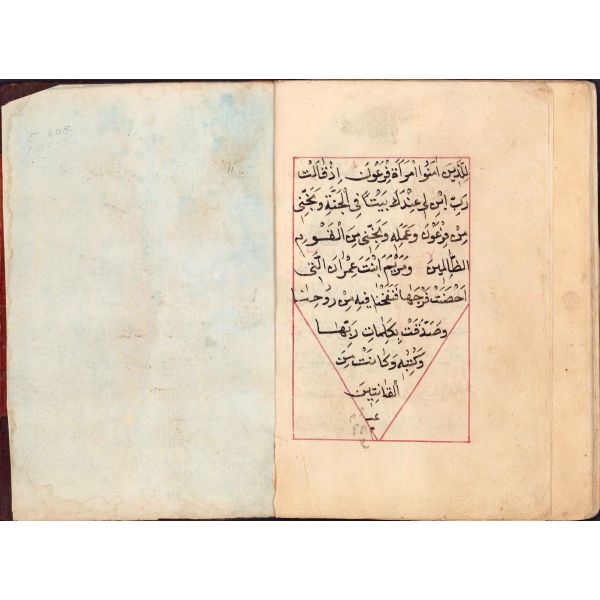 للذين امنوا امرأة فرعون اذ قالت
رب ابن لى عندك بيتا فى الجنة ونجنى
من فرعون وعمله ونجنى من القوم
الظالمين ومريم ابنت عمران التى
احصنت فرجها فنفخنا فيه من روحنا
وصدقت بكلمات ربها
وكتبه وكانت من
القانتين